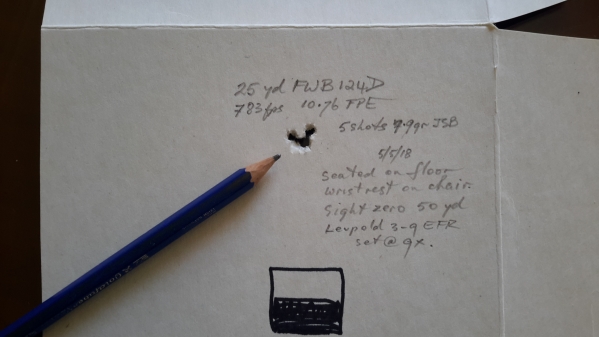 25 yd FWB 124D
783 fps 10.76 FPE
5 shots 7.9gr JSB
5/5/18
Seated on floor
wrist rest on chair.
Sight zero 50 yd
Leupold 3-9 EFR
set @ 9x.